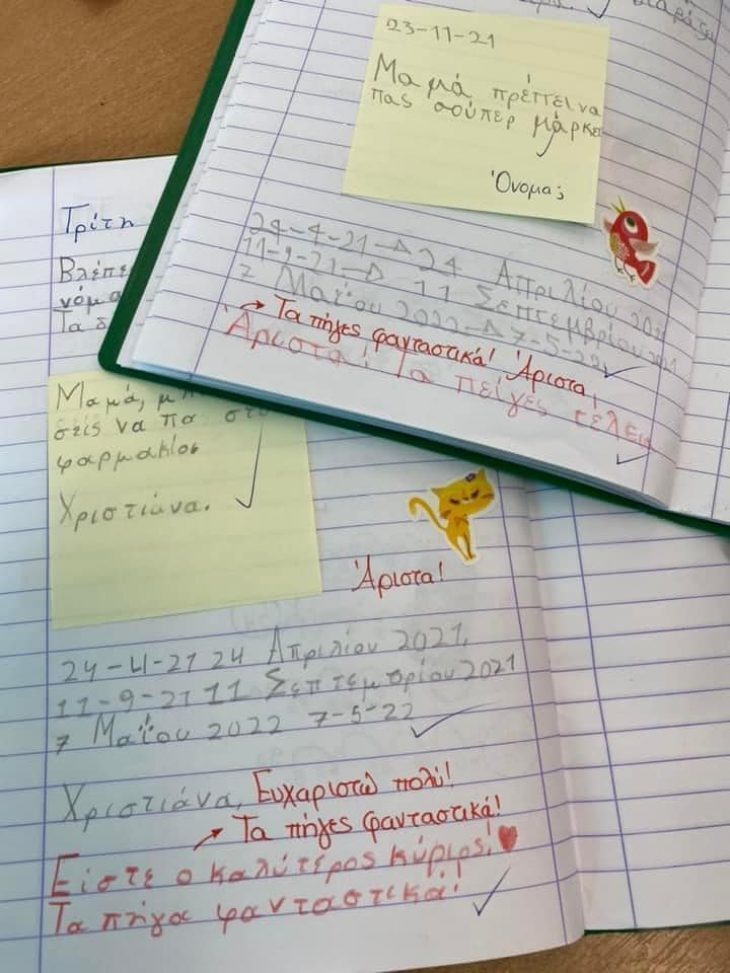 23-11-21
Μαμά πρέπει να
πας σούπερ μάρκε
Όνομα;
24-4-21-Δ 24 Απριλίου 2021
11-9-21-Δ 11 Σεπτεμβρίου 2021
7 Μαΐου 2022-Δ 7-5-22
→ Τα πήγες φανταστικά! Άριστα,
Άριστα! Τα πείγες τέλεια
Τρίτη
Βλέπε
νόμα
Τα δ
Μαμά, μπ
στίς να πα στο
φαρμακίοσ
Χριστιάνα.
Άριστα!
24-4-21 24 Απριλίου 2021,
11-9-21 11 Σεπτεμβρίου 2021
7 Μαΐου 2022 7-5-22
Χριστιάνα, Ευχαριστώ πολύ!
→ Τα πήγες φανταστικά!
Είστε ο καλύτερος κύριος!
Τα πήγα φανταστικά!